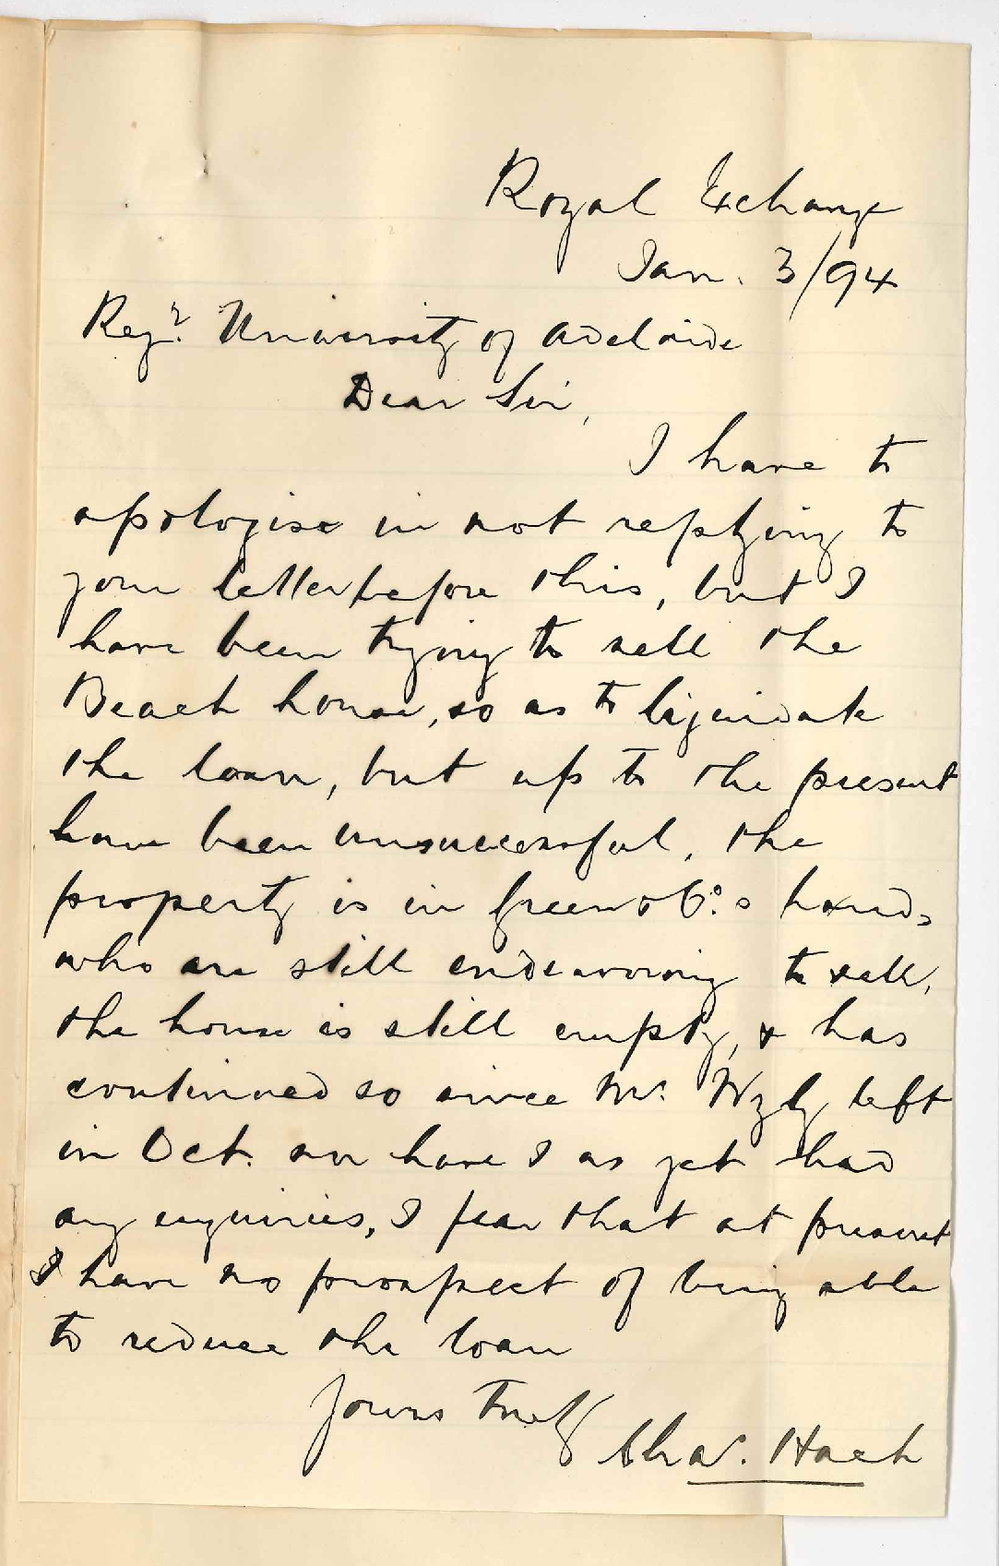 Royal Exchange
Jan. 3/94
Regr. University of Adelaide
Dear Sir,
I have to
apologise in not replying to
your letter before this, but I
have been trying to sell the
Beach house, so as to liquidate
the loan, but up to the present
have been unsuccessful, the
property is in Green & Co.s hands
who are still endeavoring to sell,
the house is still empty, & has
continued so since Mr. Wyly left
in Oct. nor have I as yet had
any enquiries, I fear that at present
I have no prospect of being able
to reduce the loan
Yours truly
Chas. Hack